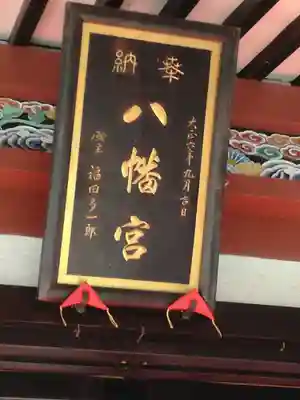 奉納
大正六年九月吉日
八幡宮
願主 福田多一郎